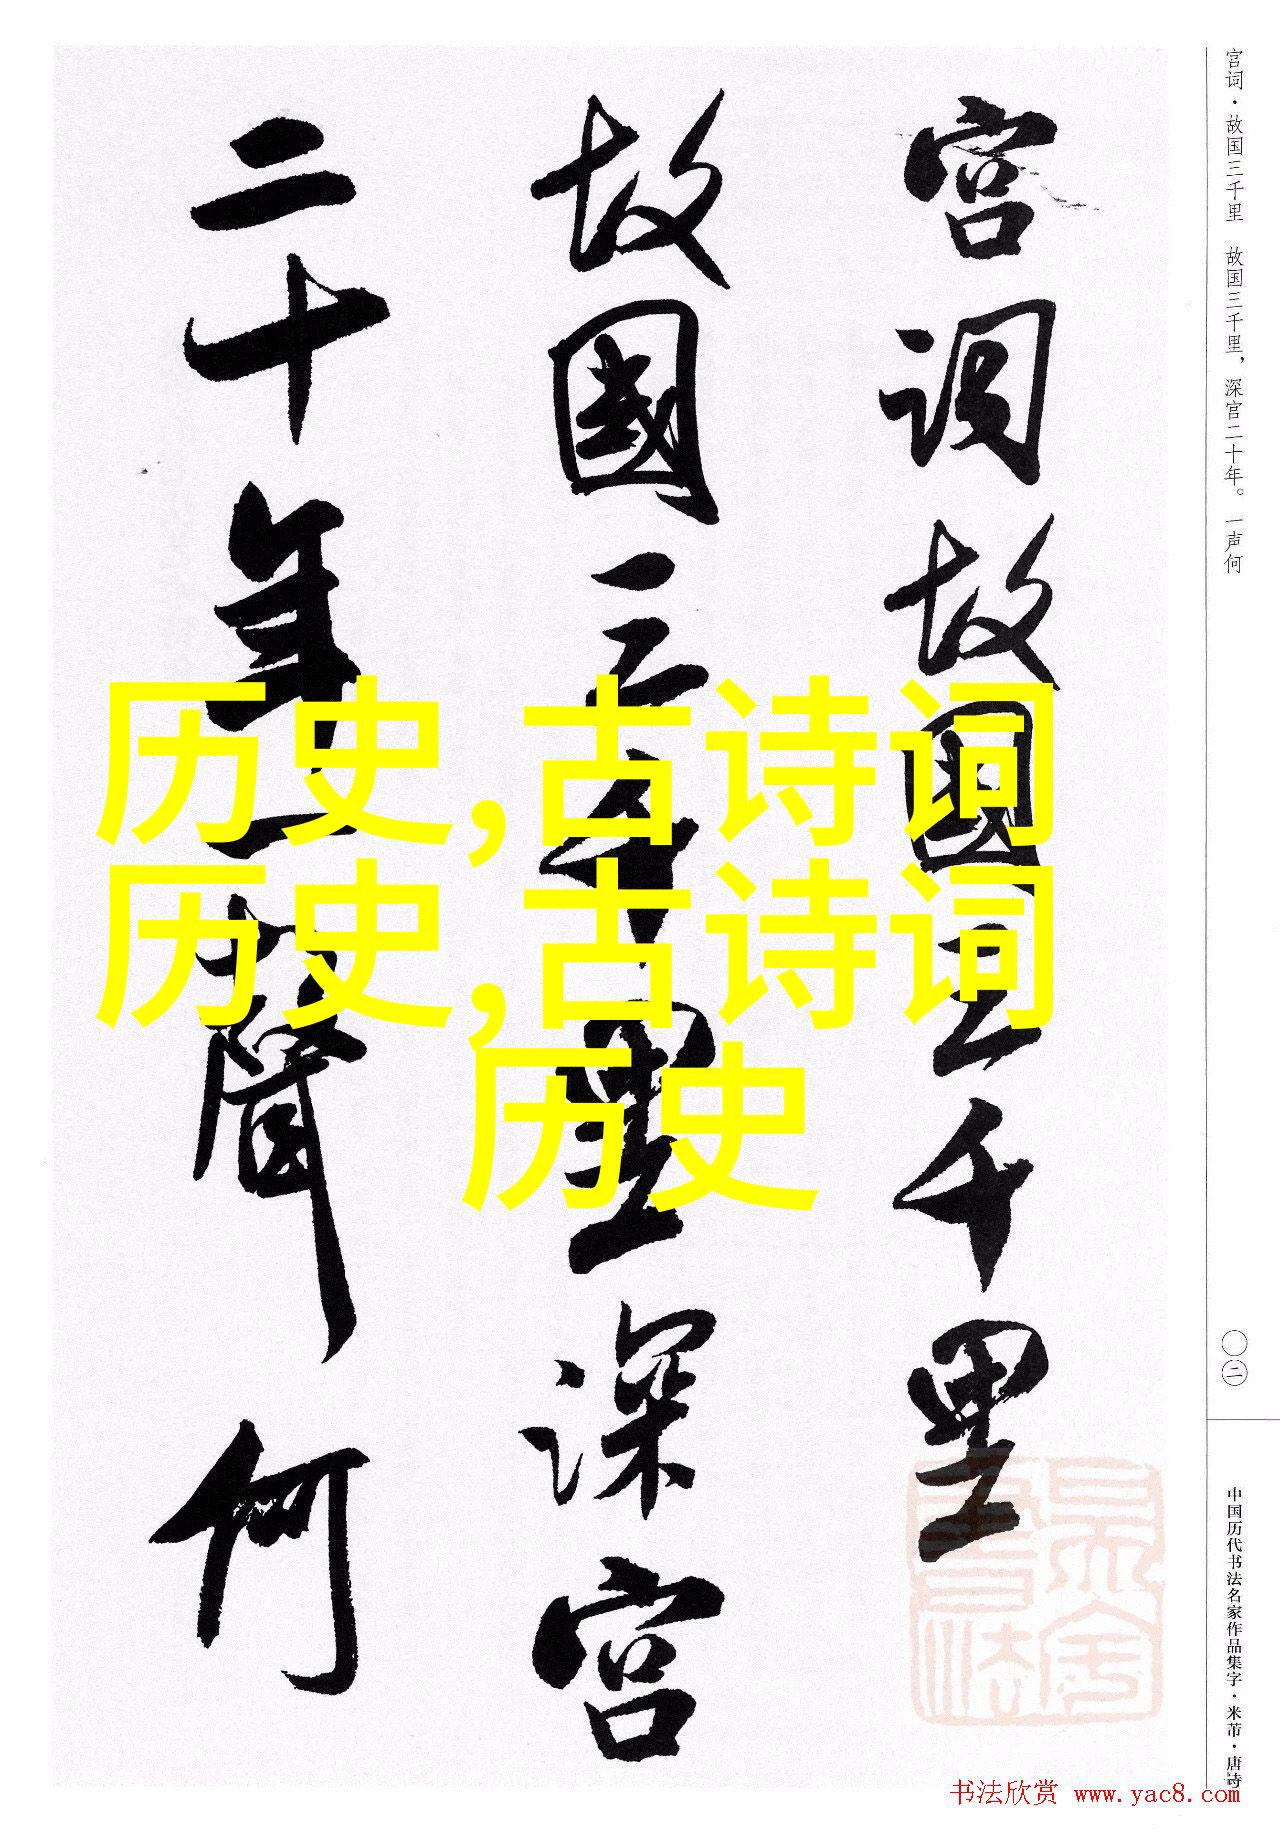 宫词·故国三千里 故国三千里，深宫二十年。一声何
宫词故國三千里
故國三千里深宫
二十年一聲何
历史,古诗词
历史,古诗词
历史
〇二
中国历代书法名家作品集字·米芾·唐诗
书法欣赏 www.yac8.com